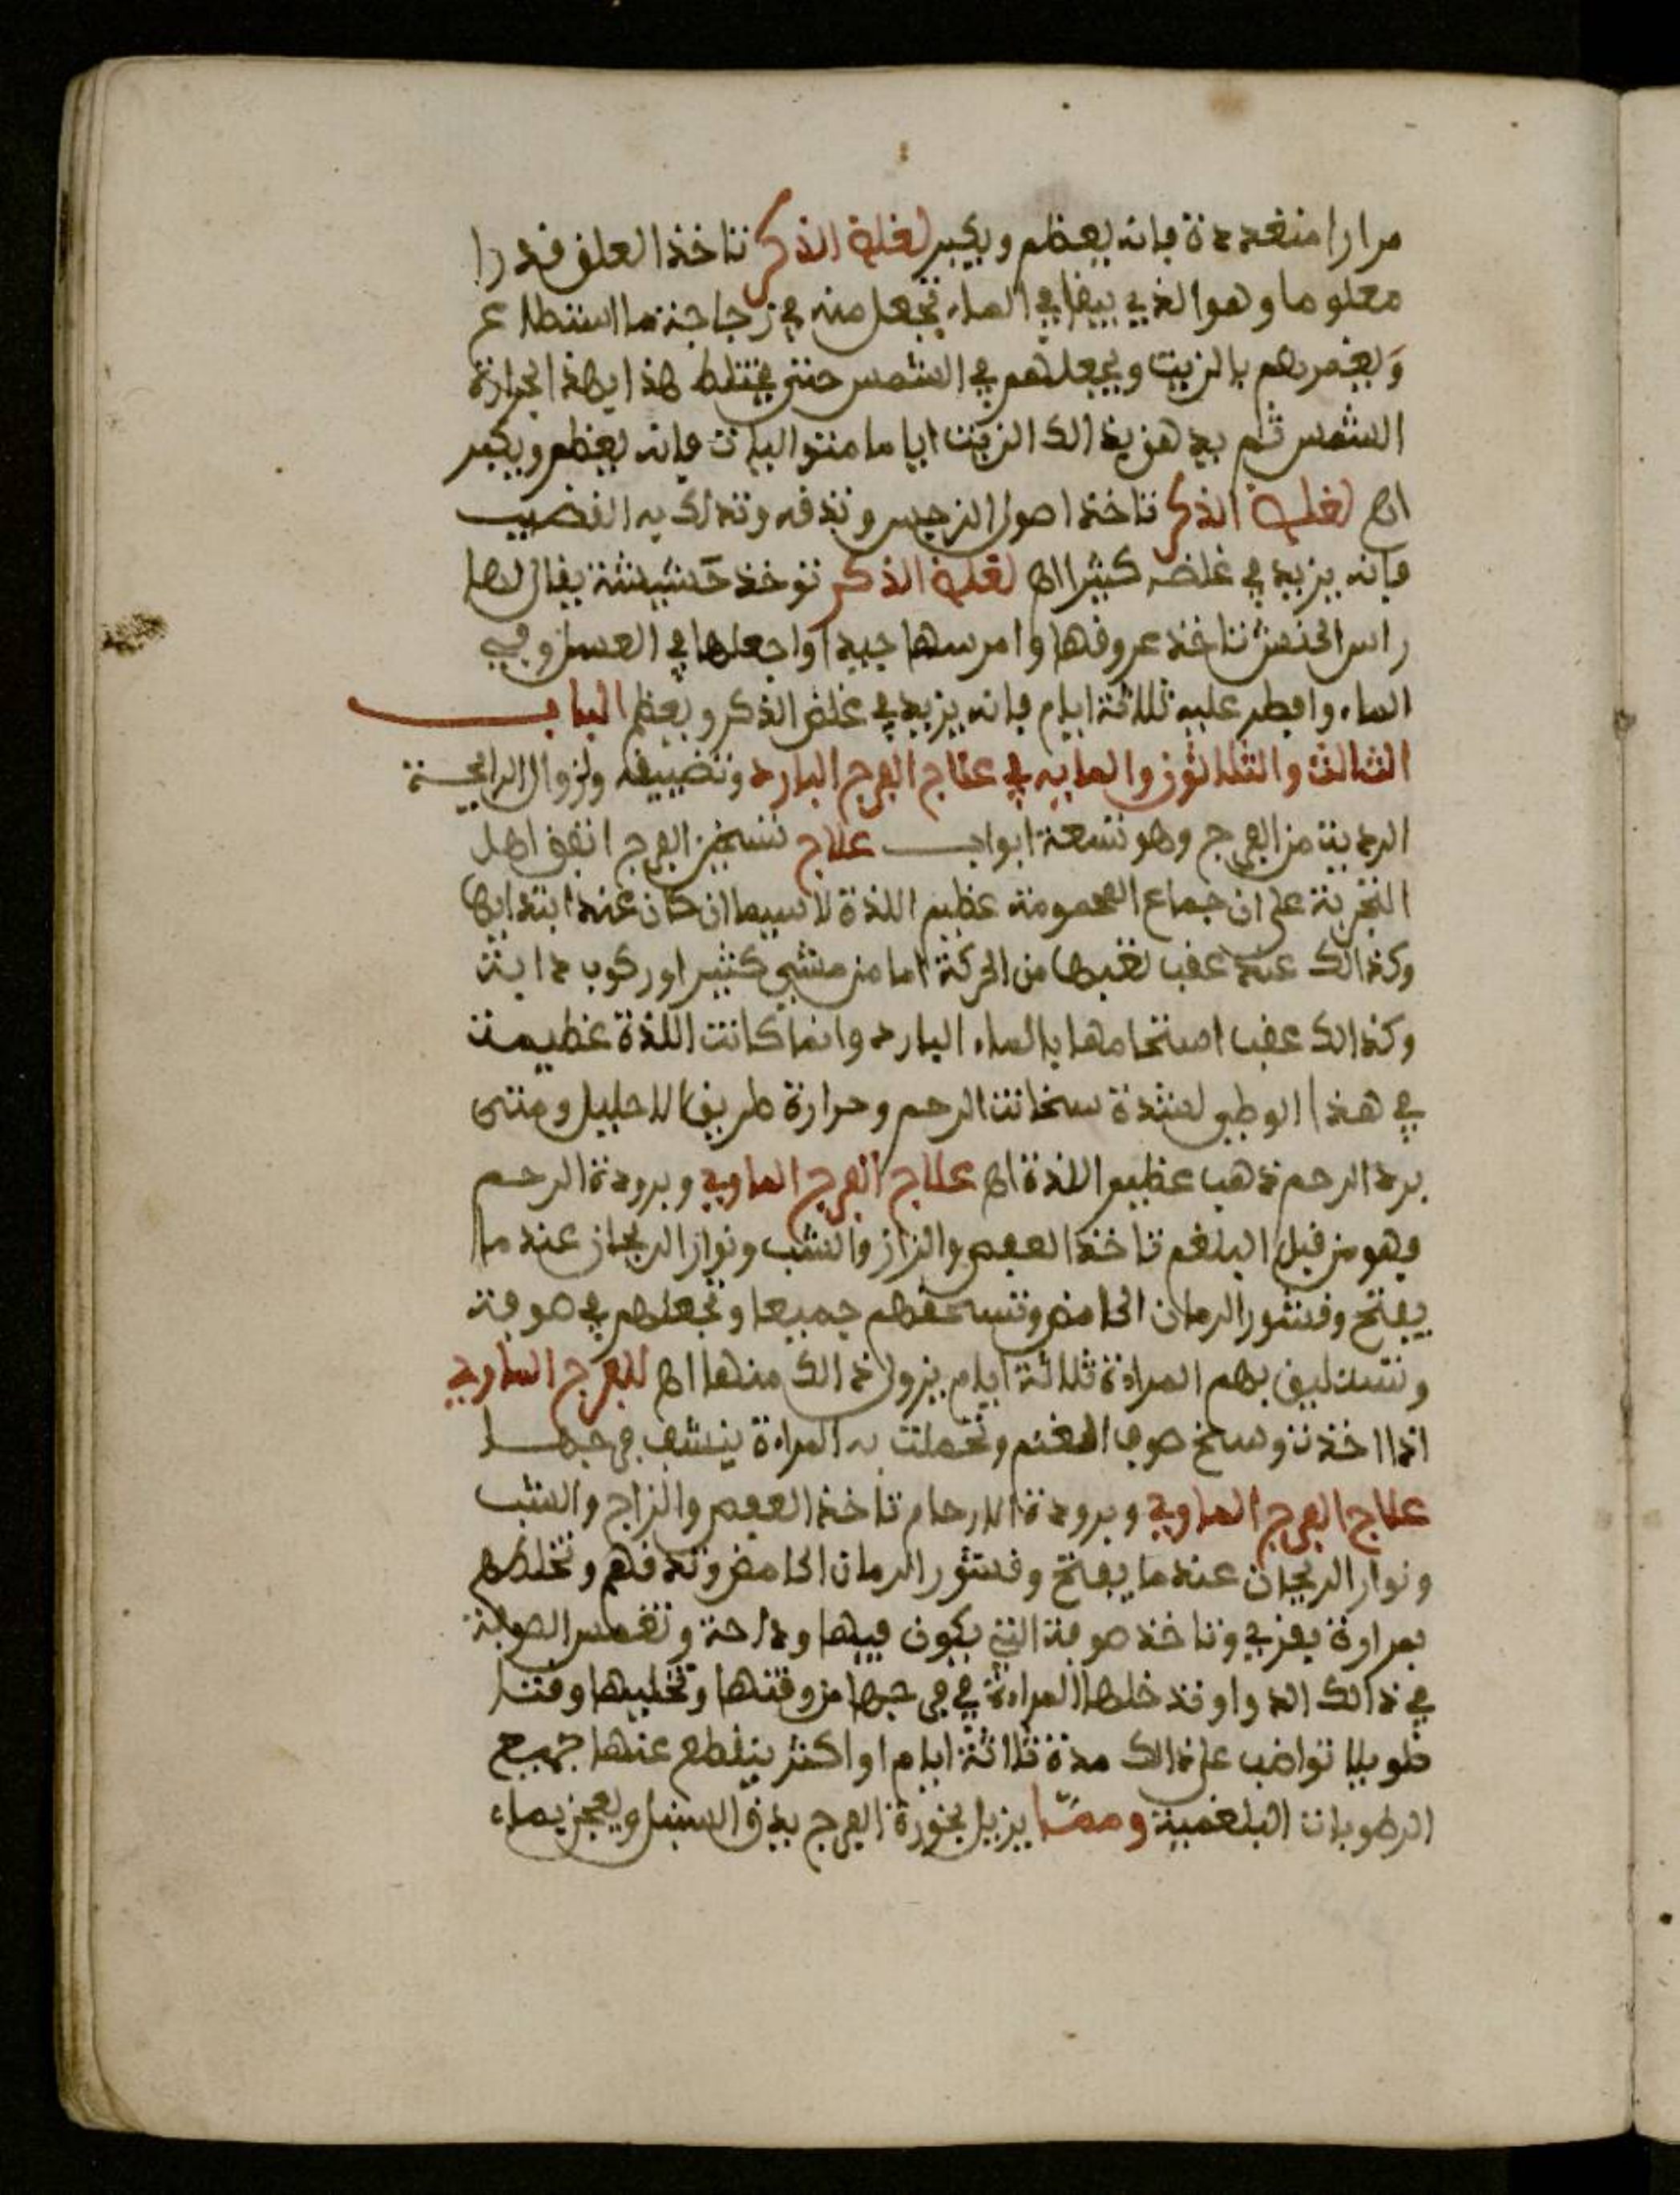 مرارا متعددة فانه يعظم ويكبر لغلظ الذكر تاخذ العلق قدرا
معلوما وهو الذي يبقا في الماء تجعل منه في زجاجة ما استطاع
ويغمرهم بالزيت ويجعلهم في الشمس حتى يختلط هذا بهذا بحرارة
الشمس ثم يدهن بذالك الزيت اياما متواليات فانه يعظم ويكبر
اه لغلظ الذكر تاخذ اصول النرجس وتدقه وتدلك به القضيب
فانه يزيد في غلضه كثيرا اه لغلظ الذكر توخذ حشيشة يقال لها
راس الحنش تاخذ عروقها وامرسها جيدا واجعلها في العسل وفي
الماء وافطر عليه ثلاثة ايام فانه يزيد في غلض الذكر ويعظم الباب
الثالث والثلاثون والمايه في علاج الفرج البارد وتضييقه ولزوال الرايحة
الردية من الفرج وهو تسعة ابواب علاج تسخين الفرج اتفق اهل
التجربة على ان جماع المحمومة عظيم اللذة لا سيما ان كان عند ابتدايها
وكذالك عند عقب تعبها من الحركة اما من مشي كثير او ركوب دابة
وكذالك عقب استحمامها بالماء البارد وانما كانت اللذة عظيمة
في هذا الوطي لشدة سخانت الرحم وحرارة طريق الاحليل ومتى
برد الرحم ذهب عظيم اللذة اه علاج الفرج الماوي وبرودة الرحم
وهو من قبل البلغم تاخذ العفص والزاز والشب ونوار الريحان عند ما
يفتح وقشور الرمان الحامض وتسحقهم جميعا وتجعلهم في صوفة
وتستليق بهم المراة ثلاثة ايام يزول ذالك منها اه للفرج الماوي
اذا اخذت وسخ صوف الغنم وتحملت به المراة ينشف فرجها
علاج الفرج الماوي وبرودة الارحام تاخذ العفص والزاج والشب
ونوار الريحان عند ما يفتح وقشور الرمان الحامض وتدقهم وتخلطهم
بمرارة بقري وتاخذ صوفة التي يكون فيها ودحة وتغمس الصوفة
في ذالك الدوا وتدخلها المراة في فرجها من وقتها وتخليها وقتا
طويلا تواضب على ذالك مدة ثلاثة ايام او اكثر ينقطع عنها جميع
الرطوبات البلغمية ومما يزيل بخورة الفرج يدق السنبل ويعجن بماء